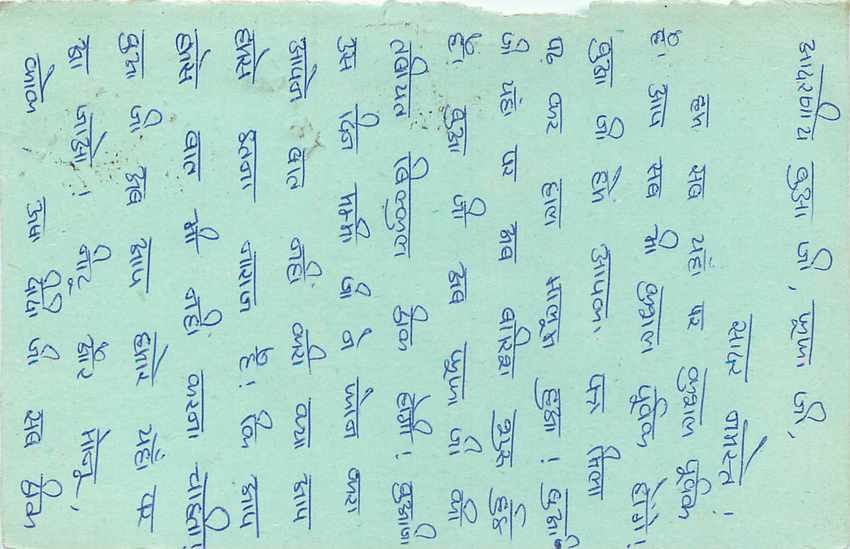 आदरणीय बुआ जी, फूफा जी,
सादर नमस्ते!
हम सब यहां पर कुशल पूर्वक
है। आप सब भी कुशल पूर्वक होंगे!
बुआ जी हमें आपका पत्र मिला
पढ़ कर हाल मालूम हुआ! बुआ
जी यहां पर अब बारिश शुरू हुई
है। बुआ जी अब फूफा जी की
तबीयत बिल्कुल ठीक होगी! बुआजी
उस दिन मम्मी जी ने फोन करा
आपने बात नहीं करी क्या आप
हमसे इतना नाराज है! कि आप
हमसे बात भी नहीं करना चाहती!
बुआ जी अब आप हमारे यहां कब
आ जाओ! नीटू और मोनू,
अन्य जी सब ठीक